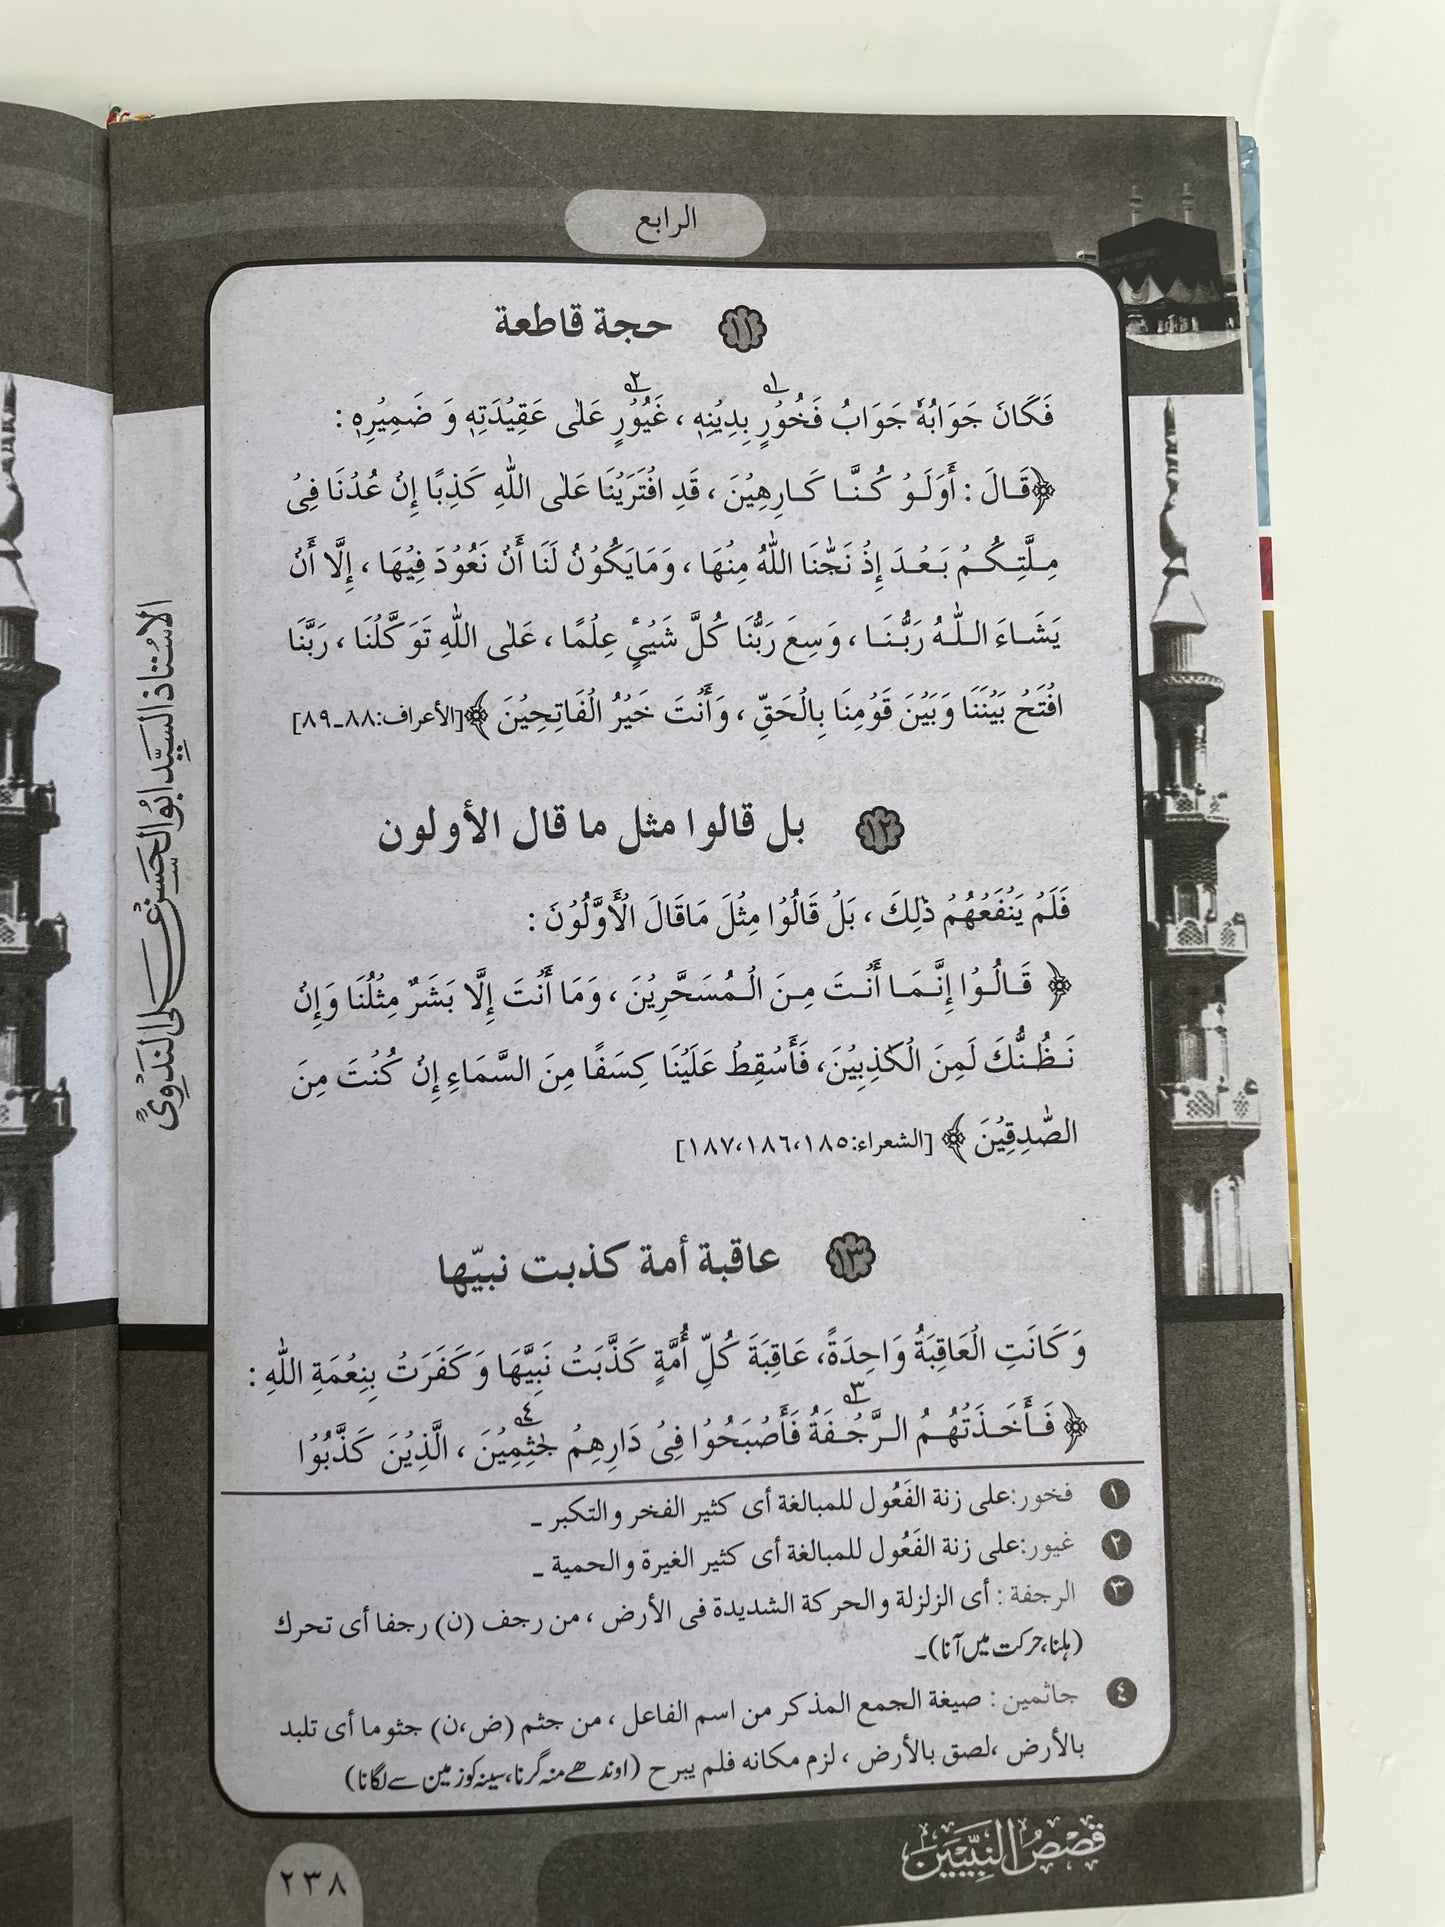 الرابع
١١ حجة قاطعة
فَكَانَ جَوَابُهٗ جَوَابُ فَخُوْرٍ١ بِدِيْنِهٖ ، غَيُوْرٍ٢ عَلٰى عَقِيْدَتِهٖ وَ ضَمِيْرِهٖ :
﴿قَالَ : أَوَلَوْ كُنَّا كَارِهِيْنَ ، قَدِ افْتَرَيْنَا عَلٰى اللّٰهِ كَذِبًا إِنْ عُدْنَا فِيْ
مِلَّتِكُمْ بَعْدَ إِذْ نَجّٰنَا اللّٰهُ مِنْهَا ، وَمَايَكُوْنُ لَنَا أَنْ نَعُوْدَ فِيْهَا ، إِلَّا أَنْ
يَشَاءَ اللّٰهُ رَبُّنَا ، وَسِعَ رَبُّنَا كُلَّ شَيْئٍ عِلْمًا ، عَلٰى اللّٰهِ تَوَكَّلْنَا ، رَبَّنَا
افْتَحْ بَيْنَنَا وَبَيْنَ قَوْمِنَا بِالْحَقِّ ، وَأَنْتَ خَيْرُ الْفَاتِحِيْنَ ﴾[الأعراف:٨٨ـ٨٩]
١٢ بل قالوا مثل ما قال الأولون
فَلَمْ يَنْفَعْهُمْ ذٰلِكَ ، بَلْ قَالُوْا مِثْلَ مَاقَالَ الْأَوَّلُوْنَ :
﴿ قَالُوْا إِنَّمَا أَنْتَ مِنَ الْمُسَحَّرِيْنَ ، وَمَا أَنْتَ إِلَّا بَشَرٌ مِثْلُنَا وَإِنْ
نَظُنُّكَ لَمِنَ الْكٰذِبِيْنَ، فَأَسْقِطْ عَلَيْنَا كِسَفًا مِنَ السَّمَاءِ إِنْ كُنْتَ مِنَ
الصّٰدِقِيْنَ ﴾ [الشعراء:١٨٥،١٨٦،١٨٧]
١٣ عاقبة أمة كذبت نبيّها
وَكَانَتِ الْعَاقِبَةُ وَاحِدَةً، عَاقِبَةَ كُلِّ أُمَّةٍ كَذَّبَتْ نَبِيَّهَا وَكَفَرَتْ بِنِعْمَةِ اللّٰهِ :
﴿ فَأَخَذَتْهُمُ الرَّجْفَةُ٣ فَأَصْبَحُوْا فِيْ دَارِهِمْ جٰثِمِيْنَ٤ ، الَّذِيْنَ كَذَّبُوْا
١ فخور:على زنة الفَعُول للمبالغة أى كثير الفخر والتكبر ـ
٢ غيور:على زنة الفَعُول للمبالغة أى كثير الغيرة والحمية ـ
٣ الرجفة : أى الزلزلة والحركة الشديدة فى الأرض ، من رجف (ن) رجفا أى تحرك
(ہلنا،حرکت میں آنا)۔
٤ جاثمين : صيغة الجمع المذكر من اسم الفاعل ، من جثم (ض،ن) جثوما أى تلبد
بالأرض ،لصق بالأرض ، لزم مكانه فلم يبرح (اوندھے منہ گرنا،سینہ کو زمین سے لگانا)
الاُستاذ السيّد ابُو الحَسَن عَلى النَدوِىّ
قَصَصُ النَبِيِّين
٢٣٨